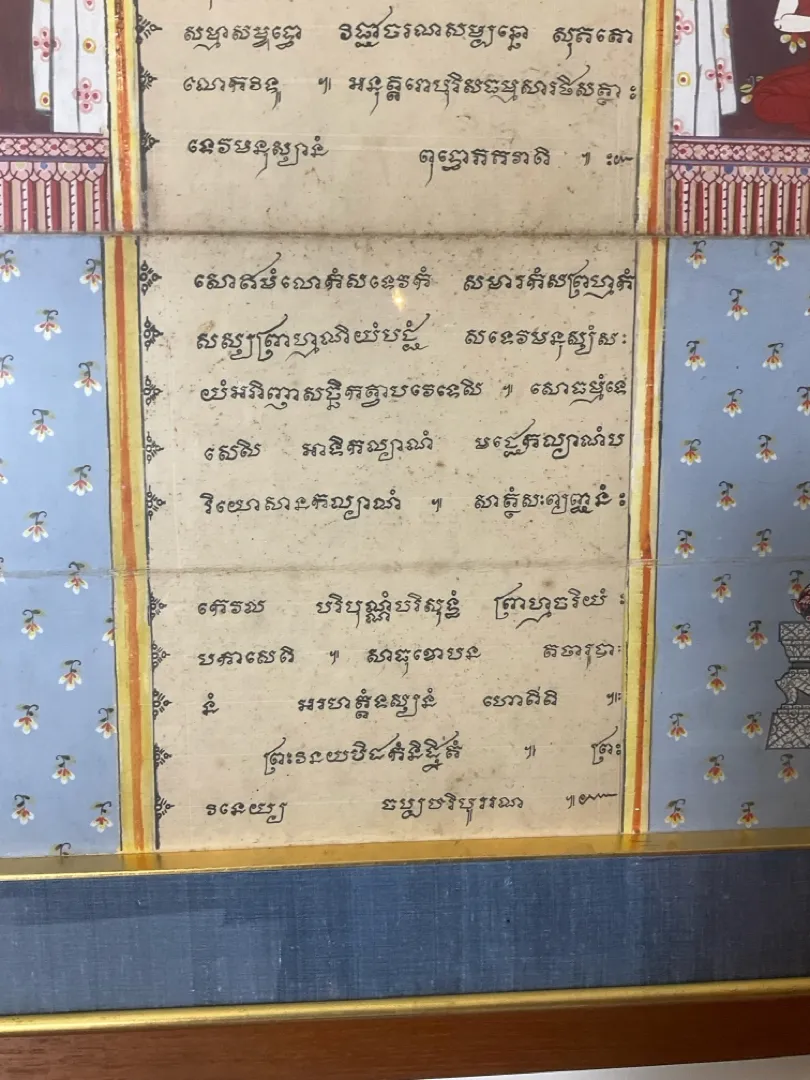 សម្មាសម្ពុទ្ធោ វិជ្ជាចរណសម្បន្នោ សុគតោ
លោកវិទូ ៕ អនុត្តរោបុរិសធម្មសារថិសត្ថា ះ
ទេវមនុស្សានំ ពុទ្ធោភគវាតិ ៕
សោឥមំលោកំសទេវកំ សមារកំសព្រហ្មកំ
សស្សព្រាហ្មណិយំបជំ សទេវមនុស្សំស ះ
យំអភិញាសច្ឆិកត្វាបវេទេសិ ៕ សោធម្មំទេ
សេសិ អាទិកល្យាណំ មជ្ឈេកល្យាណំប
រិយោសានកល្យាណំ ៕ សាត្ថំសះព្យញ្ជនំ ះ
កេវល បរិបុណ្ណំបរិសុទ្ធំ ព្រាហ្មចរិយំ ះ
បកាសេតិ ៕ សាធុខោបន តថារូបា ះ
នំ អរហត្តំទស្សនំ ហោតីតិ ៕ ះ
ព្រះវិនយបិដកំនិដ្ឋិតំ ៕ ព្រះ
វិនេយ្យ ធម្មបរិបូរណ ៕